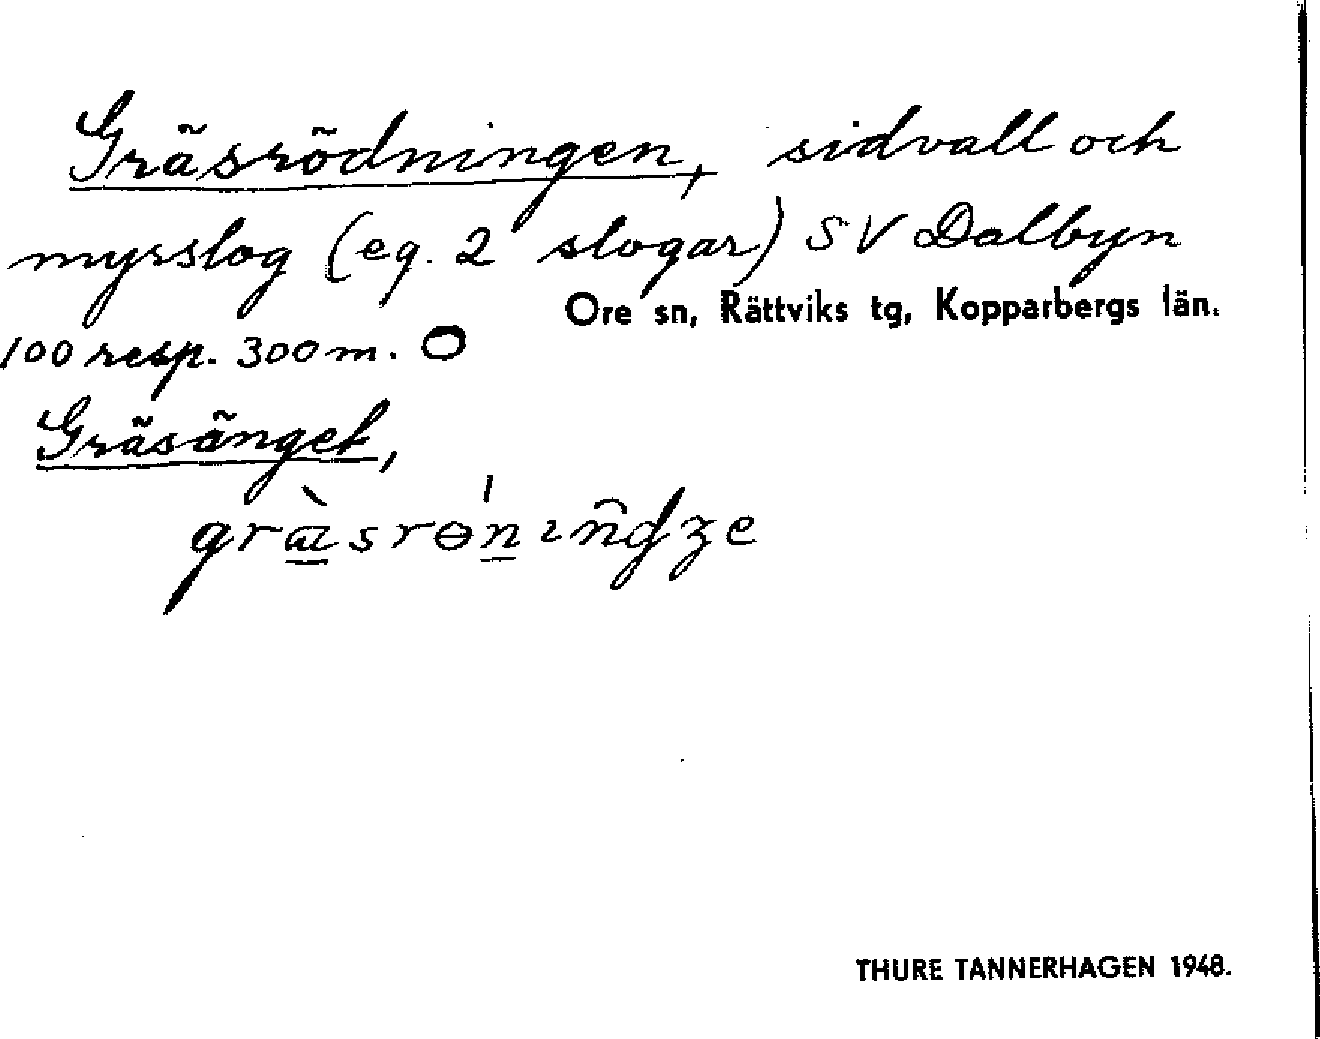 Gräsrödningen, sidvall och
myrslog (eg. 2 slogar) SV Dalbyn
Ore sn, Rättviks tg, Kopparbergs län.
100 resp. 300 m. O
Gräsänget,
THURE TANNERHAGEN 1948.